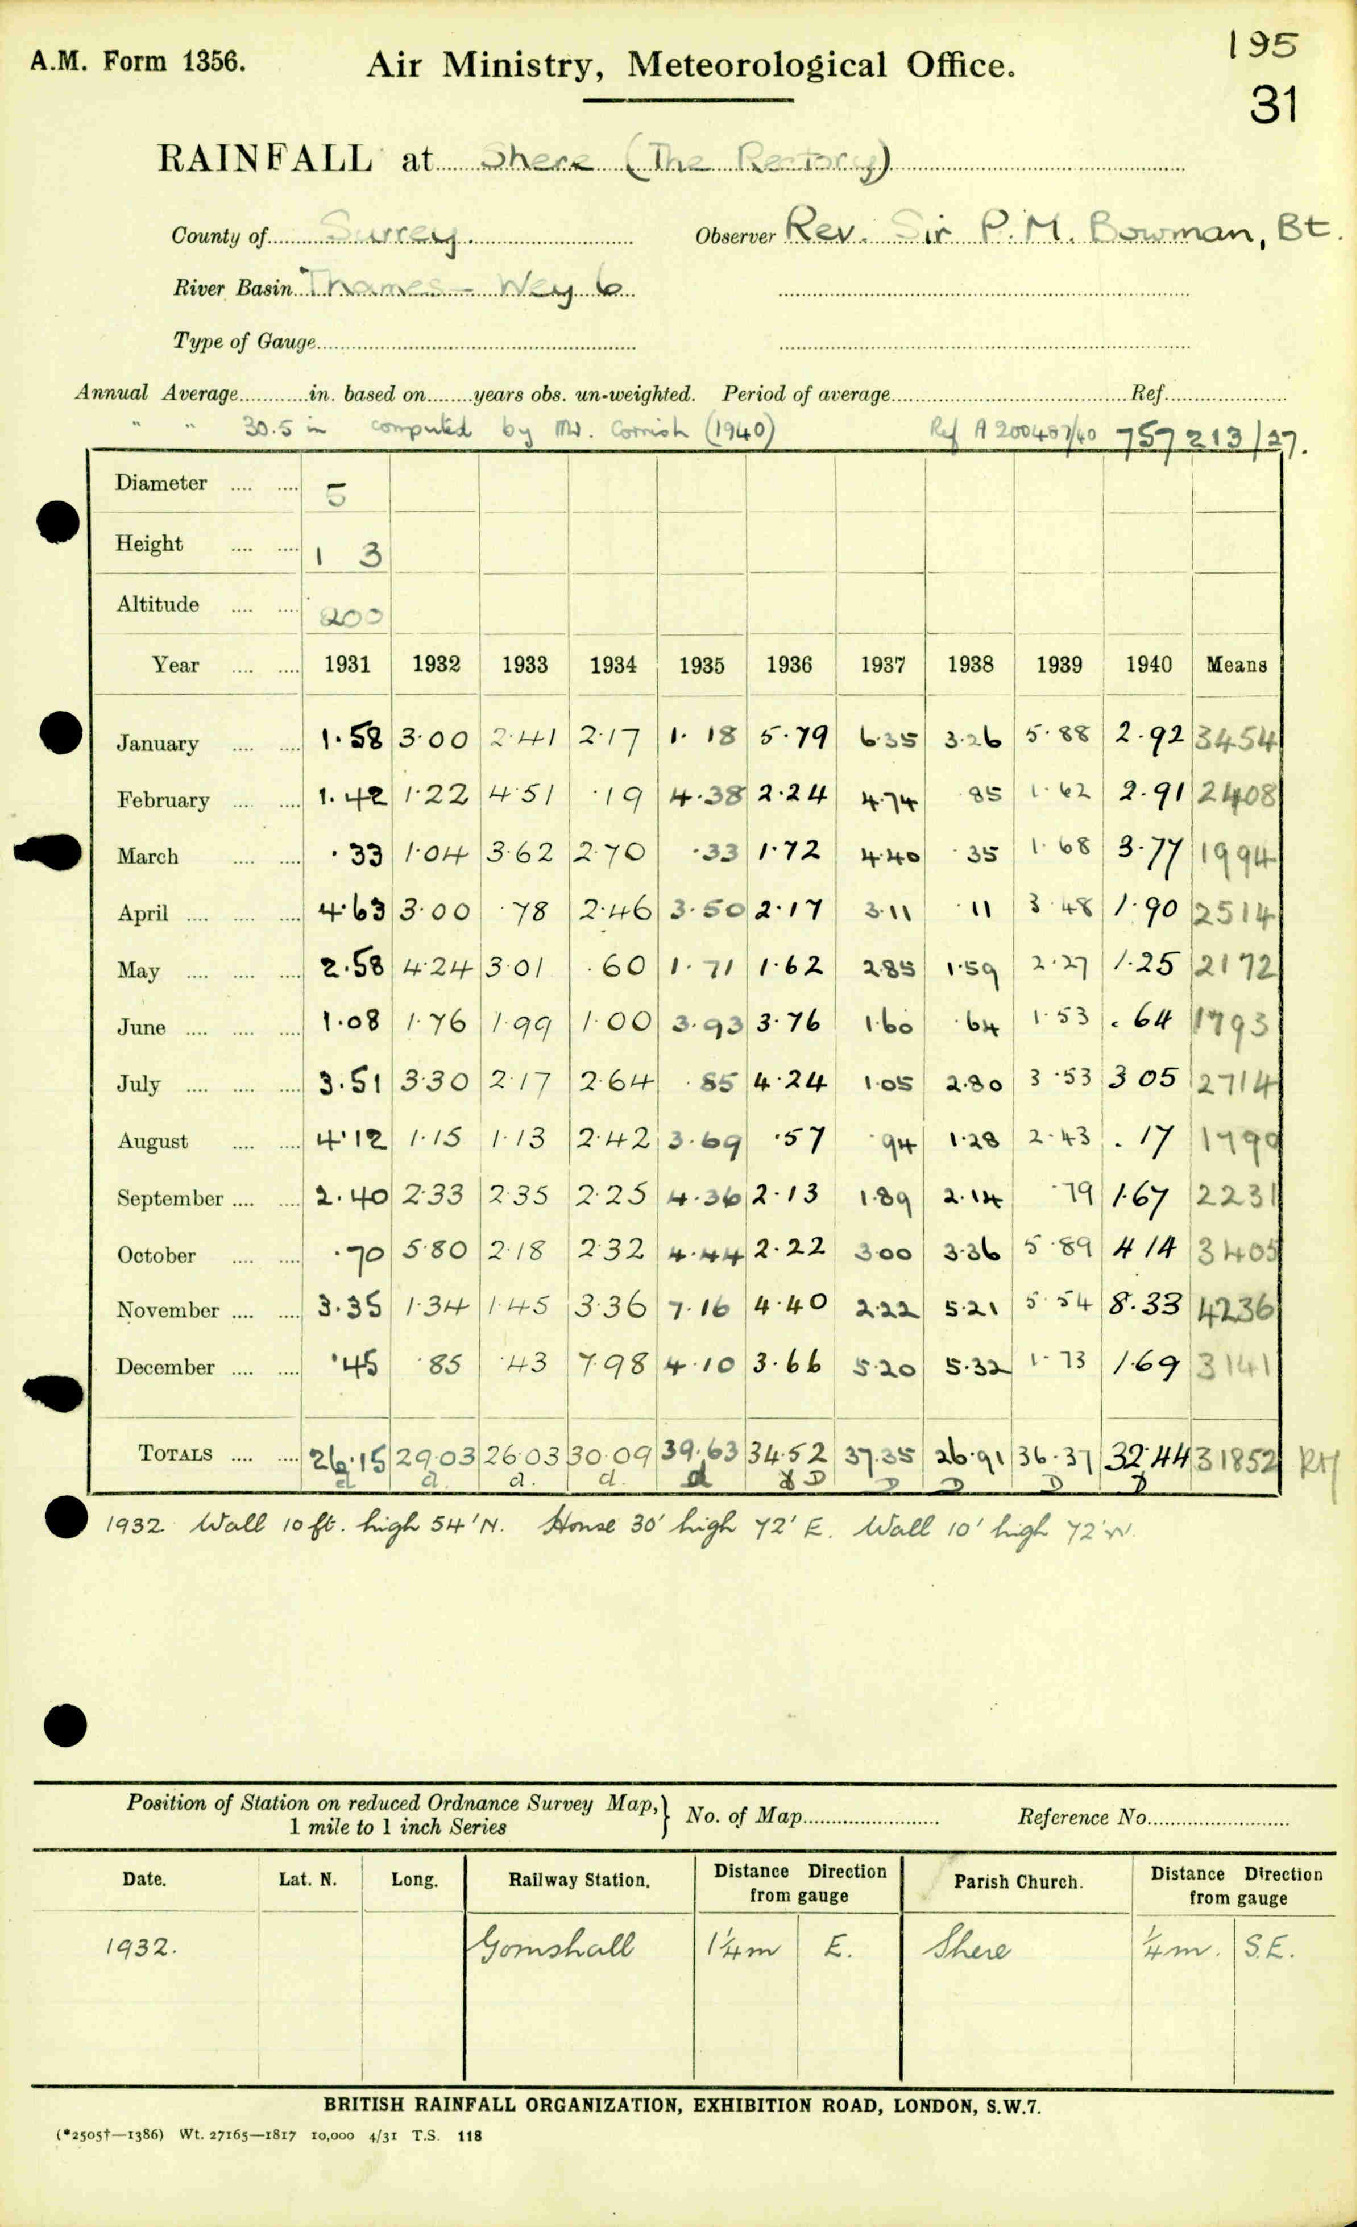 195
A.M. Form 1356. Air Ministry, Meteorological Office.
31
RAINFALL at Shere (The Rectory)
County of Surrey. Observer Rev. Sir P. M. Bowman, Bt.
River Basin Thames - Wey 6
Type of Gauge
Annual Average in. based on years obs. un-weighted. Period of average Ref.
" " 30.5 in computed by Mr. Cornish (1940) Ref A 200487/40 757213/27.
Diameter 5
Height 1 3
Altitude 200
Year 1931 1932 1933 1934 1935 1936 1937 1938 1939 1940 Means
January 1.58 3.00 2.41 2.17 1.18 5.79 6.35 3.26 5.88 2.92 3454
February 1.42 1.22 4.51 .19 4.38 2.24 4.74 85 1.62 2.91 2408
March .33 1.04 3.62 2.70 .33 1.72 4.40 .35 1.68 3.77 1994
April 4.63 3.00 .78 2.46 3.50 2.17 3.11 .11 3.48 1.90 2514
May 2.58 4.24 3.01 .60 1.71 1.62 2.85 1.59 2.27 1.25 2172
June 1.08 1.76 1.99 1.00 3.93 3.76 1.60 .64 1.53 .64 1793
July 3.51 3.30 2.17 2.64 .85 4.24 1.05 2.80 3.53 3 05 2714
August 4.12 1.15 1.13 2.42 3.69 .57 .94 1.28 2.43 .17 1790
September 2.40 2.33 2.35 2.25 4.36 2.13 1.89 2.14 .79 1.67 2231
October .70 5.80 2.18 2.32 4.44 2.22 3.00 3.36 5.89 4 14 3405
November 3.35 1.34 1.45 3.36 7.16 4.40 2.22 5.21 5.54 8.33 4236
December .45 .85 .43 7.98 4.10 3.66 5.20 5.32 1.73 1.69 3141
TOTALS 26.15 29.03 26.03 30.09 39.63 34.52 37.35 26.91 36.37 32.44 31852 RH
d d. d. d. d D D D D D
1932 Wall 10 ft. high 54' N. House 30' high 72' E. Wall 10' high 72' W.
Position of Station on reduced Ordnance Survey Map, } No. of Map Reference No.
1 mile to 1 inch Series
Date. Lat. N. Long. Railway Station. Distance Direction from gauge Parish Church. Distance Direction from gauge
1932. Gomshall 1¼m E. Shere ¼m. S.E.
BRITISH RAINFALL ORGANIZATION, EXHIBITION ROAD, LONDON, S.W.7.
(*2505†—1386) Wt. 27165—1817 10,000 4/31 T.S. 118